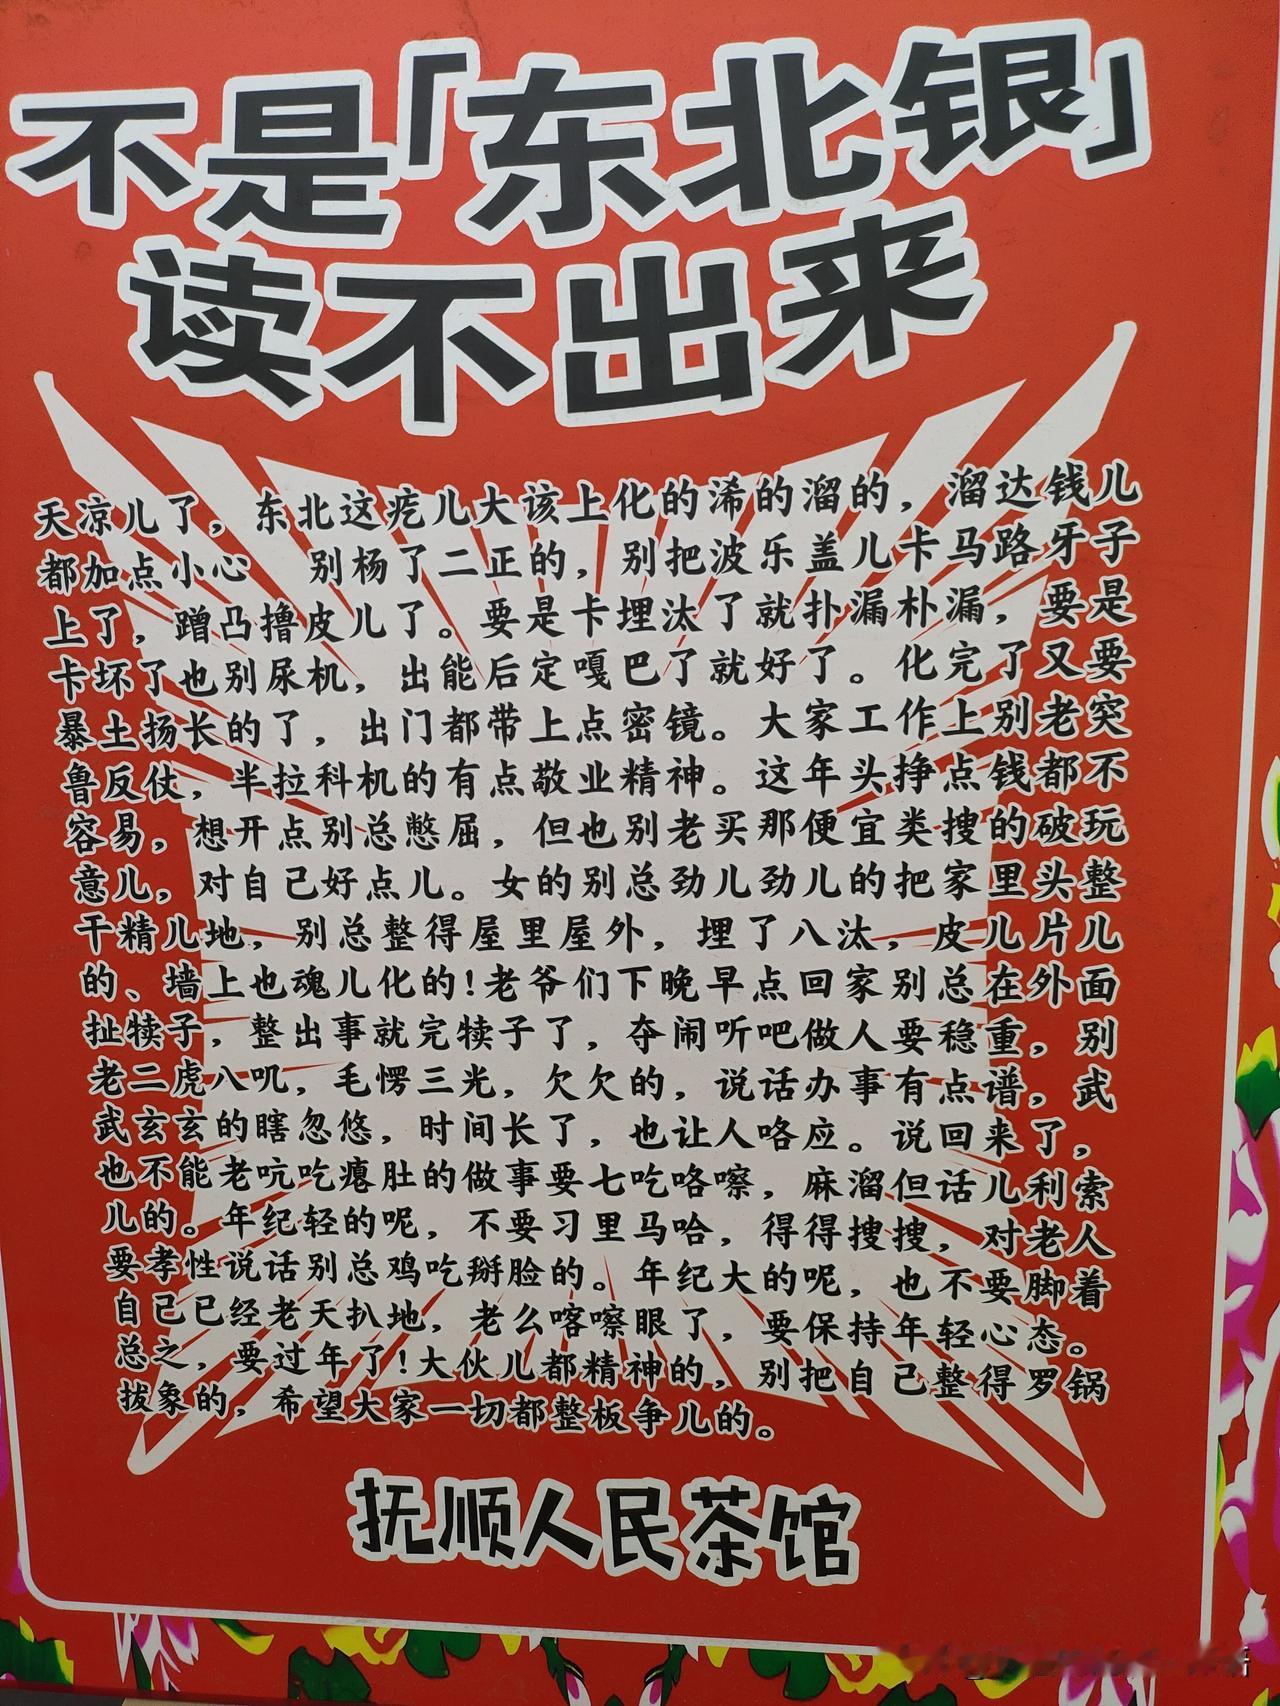 不是「东北银」
读不出来
天凉儿了，东北这疙儿大该上化的浠的溜的，溜达钱儿
都加点小心 别杨了二正的，别把波乐盖儿卡马路牙子
上了，蹭凸撸皮儿了。要是卡埋汰了就扑漏朴漏，要是
卡坏了也别尿机，出能后定嘎巴了就好了。化完了又要
暴土扬长的了，出门都带上点密镜。大家工作上别老突
鲁反仗，半拉科机的有点敬业精神。这年头挣点钱都不
容易，想开点别总憋屈，但也别老买那便宜类搜的破玩
意儿，对自己好点儿。女的别总劲儿劲儿的把家里头整
干精儿地，别总整得屋里屋外，埋了八汰，皮儿片儿
的、墙上也魂儿化的!老爷们下晚早点回家别总在外面
扯犊子，整出事就完犊子了，夯闹听吧做人要稳重，别
老二虎八叽，毛愣三光，欠欠的，说话办事有点谱，武
武玄玄的瞎忽悠，时间长了，也让人咯应。说回来了，
也不能老吭吃瘪肚的做事要七吃咯嚓，麻溜但话儿利索
儿的。年纪轻的呢，不要习里马哈，得得搜搜，对老人
要孝性说话别总鸡吃掰脸的。年纪大的呢，也不要脚着
自己已经老天扒地，老么喀嚓眼了，要保持年轻心态。
总之，要过年了!大伙儿都精神的，别把自己整得罗锅
拔象的，希望大家一切都整板争儿的。
抚顺人民茶馆